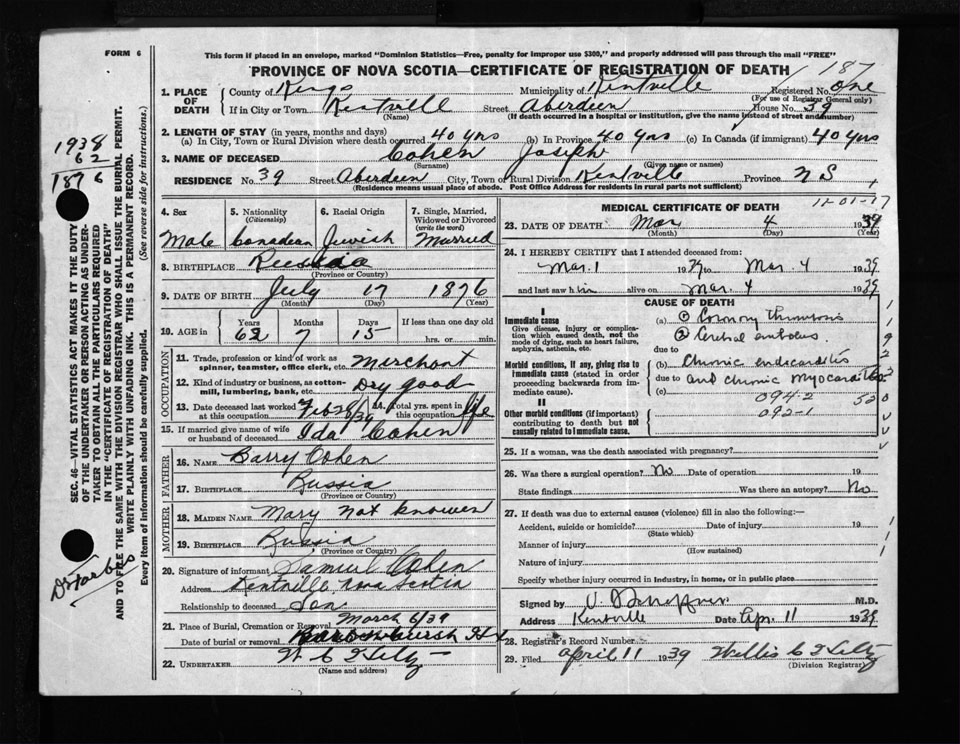 FORM 6
This form if placed in an envelope, marked "Dominion Statistics—Free, penalty for improper use $300," and properly addressed will pass through the mail "FREE"
PROVINCE OF NOVA SCOTIA—CERTIFICATE OF REGISTRATION OF DEATH
187
1. PLACE OF DEATH County of Kings Municipality of Kentville Registered No. one
(For use of Registrar General only)
If in City or Town Kentville Street Aberdeen House No. 39
(Name) (If death occurred in a hospital or institution, give the name instead of street and number)
2. LENGTH OF STAY (in years, months and days)
(a) In City, Town or Rural Division where death occurred 40 yrs (b) In Province 40 yrs (c) In Canada (if immigrant) 40 yrs
3. NAME OF DECEASED Cohen Joseph
(Surname) (Given name or names)
RESIDENCE No. 39 Street Aberdeen City, Town or Rural Division Kentville Province N S
(Residence means usual place of abode. Post Office Address for residents in rural parts not sufficient)
1938
62
1876
SEC. 46—VITAL STATISTICS ACT MAKES IT THE DUTY
OF THE UNDERTAKER OR PERSON ACTING AS UNDER-
TAKER TO OBTAIN ALL THE PARTICULARS REQUIRED
IN THE "CERTIFICATE OF REGISTRATION OF DEATH"
AND TO FILE THE SAME WITH THE DIVISION REGISTRAR WHO SHALL ISSUE THE BURIAL PERMIT.
WRITE PLAINLY WITH UNFADING INK. THIS IS A PERMANENT RECORD.
Every item of information should be carefully supplied. (See reverse side for instructions.)
4. Sex 5. Nationality (Citizenship) 6. Racial Origin 7. Single, Married, Widowed or Divorced (write the word)
Male Canadian Jewish Married
8. BIRTHPLACE Russia
(Province or Country)
9. DATE OF BIRTH July 17 1876
(Month) (Day) (Year)
10. AGE in Years Months Days If less than one day old
62 7 15 hrs. or min.
OCCUPATION
11. Trade, profession or kind of work as spinner, teamster, office clerk, etc. Merchant
12. Kind of industry or business, as cotton-mill, lumbering, bank, etc. Dry good
13. Date deceased last worked at this occupation Feb 28/39 14. Total yrs. spent in this occupation life
15. If married give name of wife or husband of deceased Ida Cohen
FATHER
16. NAME Barry Cohen
17. BIRTHPLACE Russia
(Province or Country)
MOTHER
18. MAIDEN NAME Mary not known
19. BIRTHPLACE Russia
(Province or Country)
20. Signature of informant Samuel Cohen
Address Kentville Nova Scotia
Relationship to deceased Son
21. Place of Burial, Cremation or Removal
Date of burial or removal March 6/39
22. UNDERTAKER
(Name and address)
MEDICAL CERTIFICATE OF DEATH
11-01-17
23. DATE OF DEATH Mar 4 1939
(Month) (Day) (Year)
24. I HEREBY CERTIFY that I attended deceased from
Mar. 1 1939 to Mar 4 1939
and last saw him alive on Mar. 4 1939
CAUSE OF DEATH
I
Immediate cause
Give disease, injury or complication which caused death, not the mode of dying, such as heart failure, asphyxia, asthenia, etc.
(a) ① Coronary thrombosis
② Cerebral embolus
due to
Morbid conditions, if any, giving rise to immediate cause (stated in order proceeding backwards from immediate cause).
(b) Chronic endocarditis
due to and chronic myocarditis
(c) 094-2
092-1
II
Other morbid conditions (if important) contributing to death but not causally related to immediate cause.
25. If a woman, was the death associated with pregnancy?
26. Was there a surgical operation? No Date of operation 19
State findings Was there an autopsy? No
27. If death was due to external causes (violence) fill in also the following:—
Accident, suicide or homicide? Date of injury 19
(State which)
Manner of injury
(How sustained)
Nature of injury
Specify whether injury occurred in industry, in home, or in public place
Signed by M.D.
Address Kentville Date Apr. 11 1939
28. Registrar's Record Number
29. Filed April 11 1939
(Division Registrar)